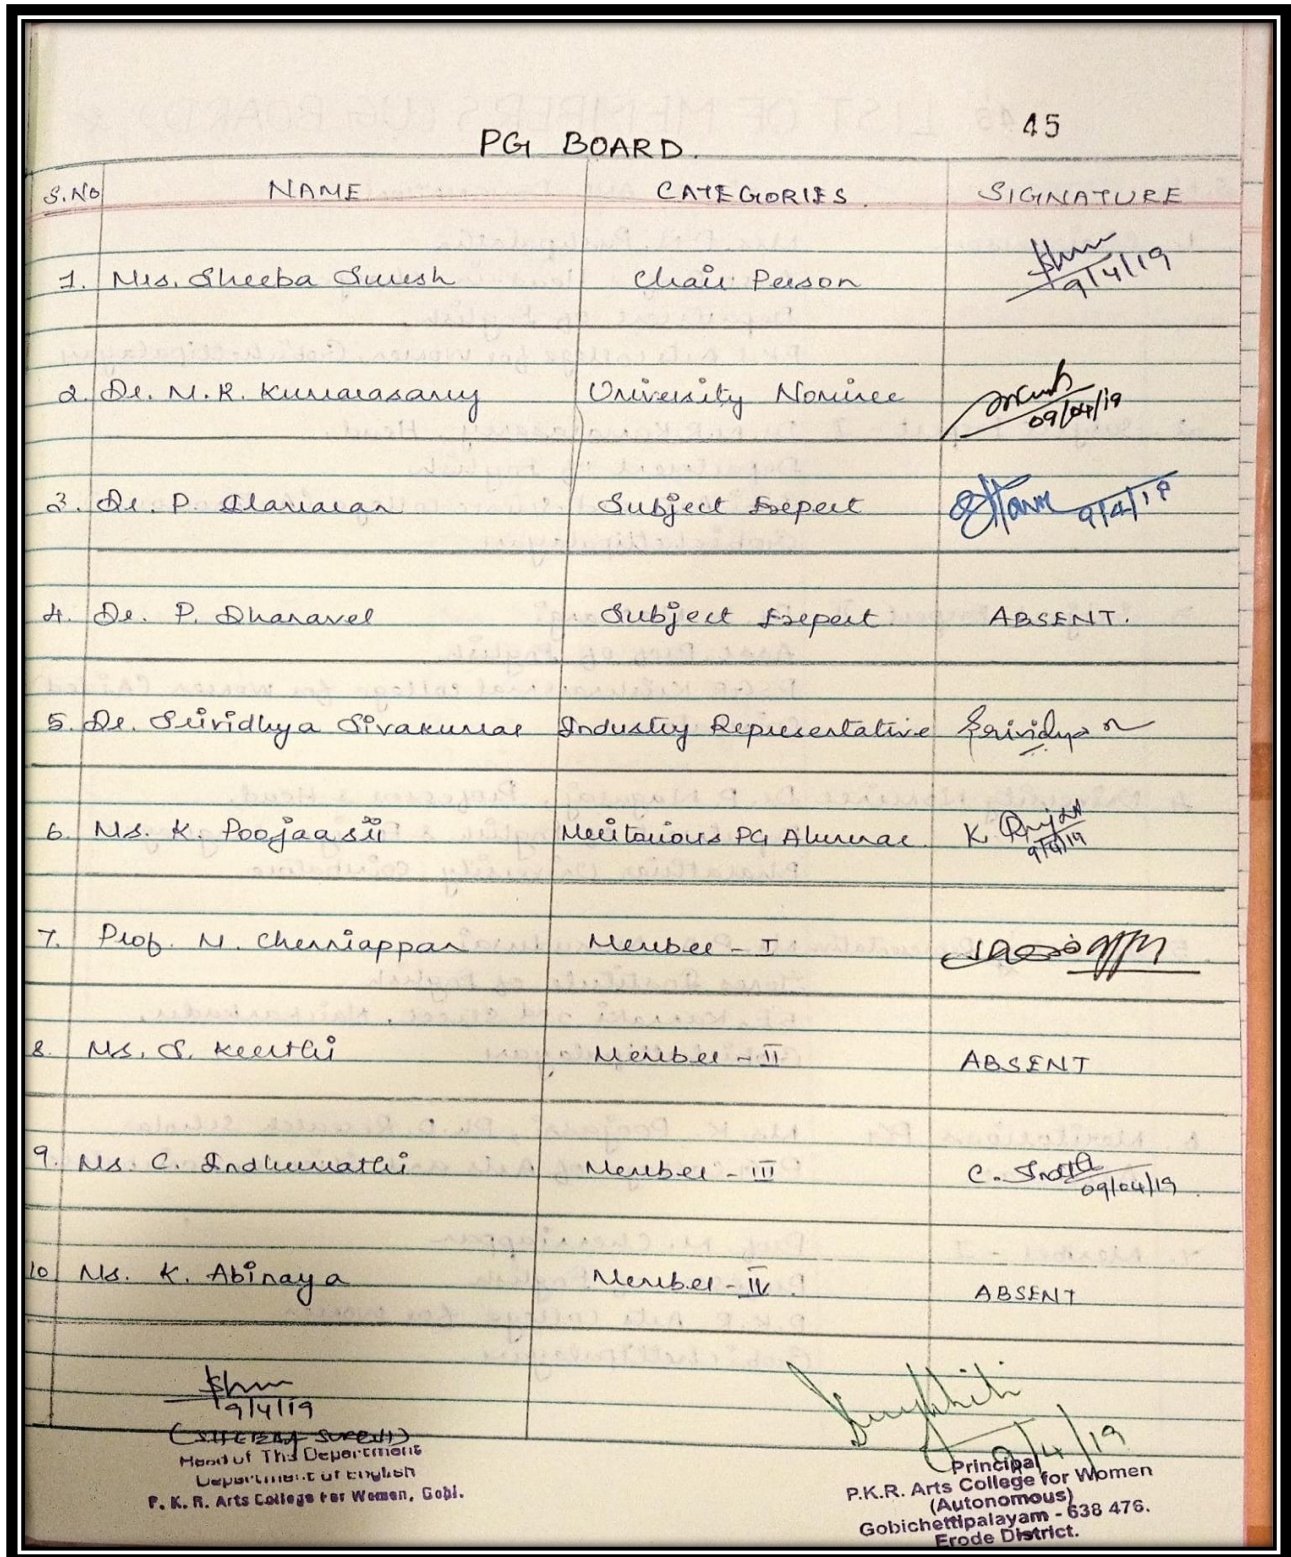 45
PG BOARD.
S.No NAME CATEGORIES. SIGNATURE
1. Mrs. Sheeba Suresh Chair Person 9/4/19
2. Dr. M.R. Kumarasamy University Nominee 09/04/19
3. Dr. P. Elanaran Subject Expert 9/4/19
4. Dr. P. Dhanavel Subject Expert ABSENT.
5. Dr. Srividhya Sivakumar Industry Representative Srividya
6. Ms. K. Poojaasri Meritorious PG Alumnae. K. 9/4/19
7. Prof. M. Chenniappan Member - I
8. Ms. S. Keerthi Member - II ABSENT
9. Ms. C. Indhumathi Member - III C. 09/04/19
10 Ms. K. Abinaya Member - IV ABSENT
9/4/19
(SHEEBA SURESH)
Head of The Department
Department of English
P. K. R. Arts College For Women, Gobi.
9/4/19
Principal
P.K.R. Arts College for Women
(Autonomous)
Gobichettipalayam - 638 476.
Erode District.